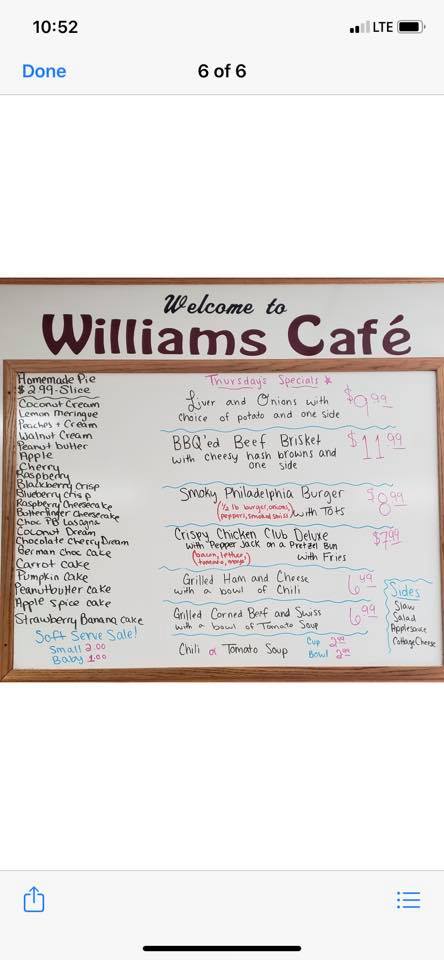 10:52
LTE
Done
6 of 6
Welcome to
Williams Café
Homemade Pie
$2.99-Slice
Coconut Cream
Lemon Meringue
Peaches + Cream
Walnut Cream
Peanut butter
Apple
Cherry
Raspberry
Blackberry Crisp
Blueberry Crisp
Raspberry Cheesecake
Butterfinger Cheesecake
Choc PB Lasagna
Coconut Dream
Chocolate Cherry Dream
German Choc Cake
Carrot Cake
Pumpkin Cake
Peanutbutter Cake
Apple Spice Cake
Strawberry Banana Cake
Soft Serve Sale!
Small 2.00
Baby 1.00
Thursdays Specials
Liver and Onions with $9.99
choice of potato and one side
BBQ'ed Beef Brisket $11.99
with cheesy hash browns and
one side
Smoky Philadelphia Burger $8.99
(1/2 lb burger, onions,
peppers, smoked swiss) with Tots
Crispy Chicken Club Deluxe $7.99
with Pepper Jack on a Pretzel Bun
(bacon, lettuce,
tomato, mayo) with Fries
Grilled Ham and Cheese 6.49
with a bowl of Chili
Grilled Corned Beef and Swiss 6.99
with a bowl of Tomato Soup
Chili or Tomato Soup
Cup
Bowl
Sides
Slaw
Salad
Applesauce
Cottage Cheese